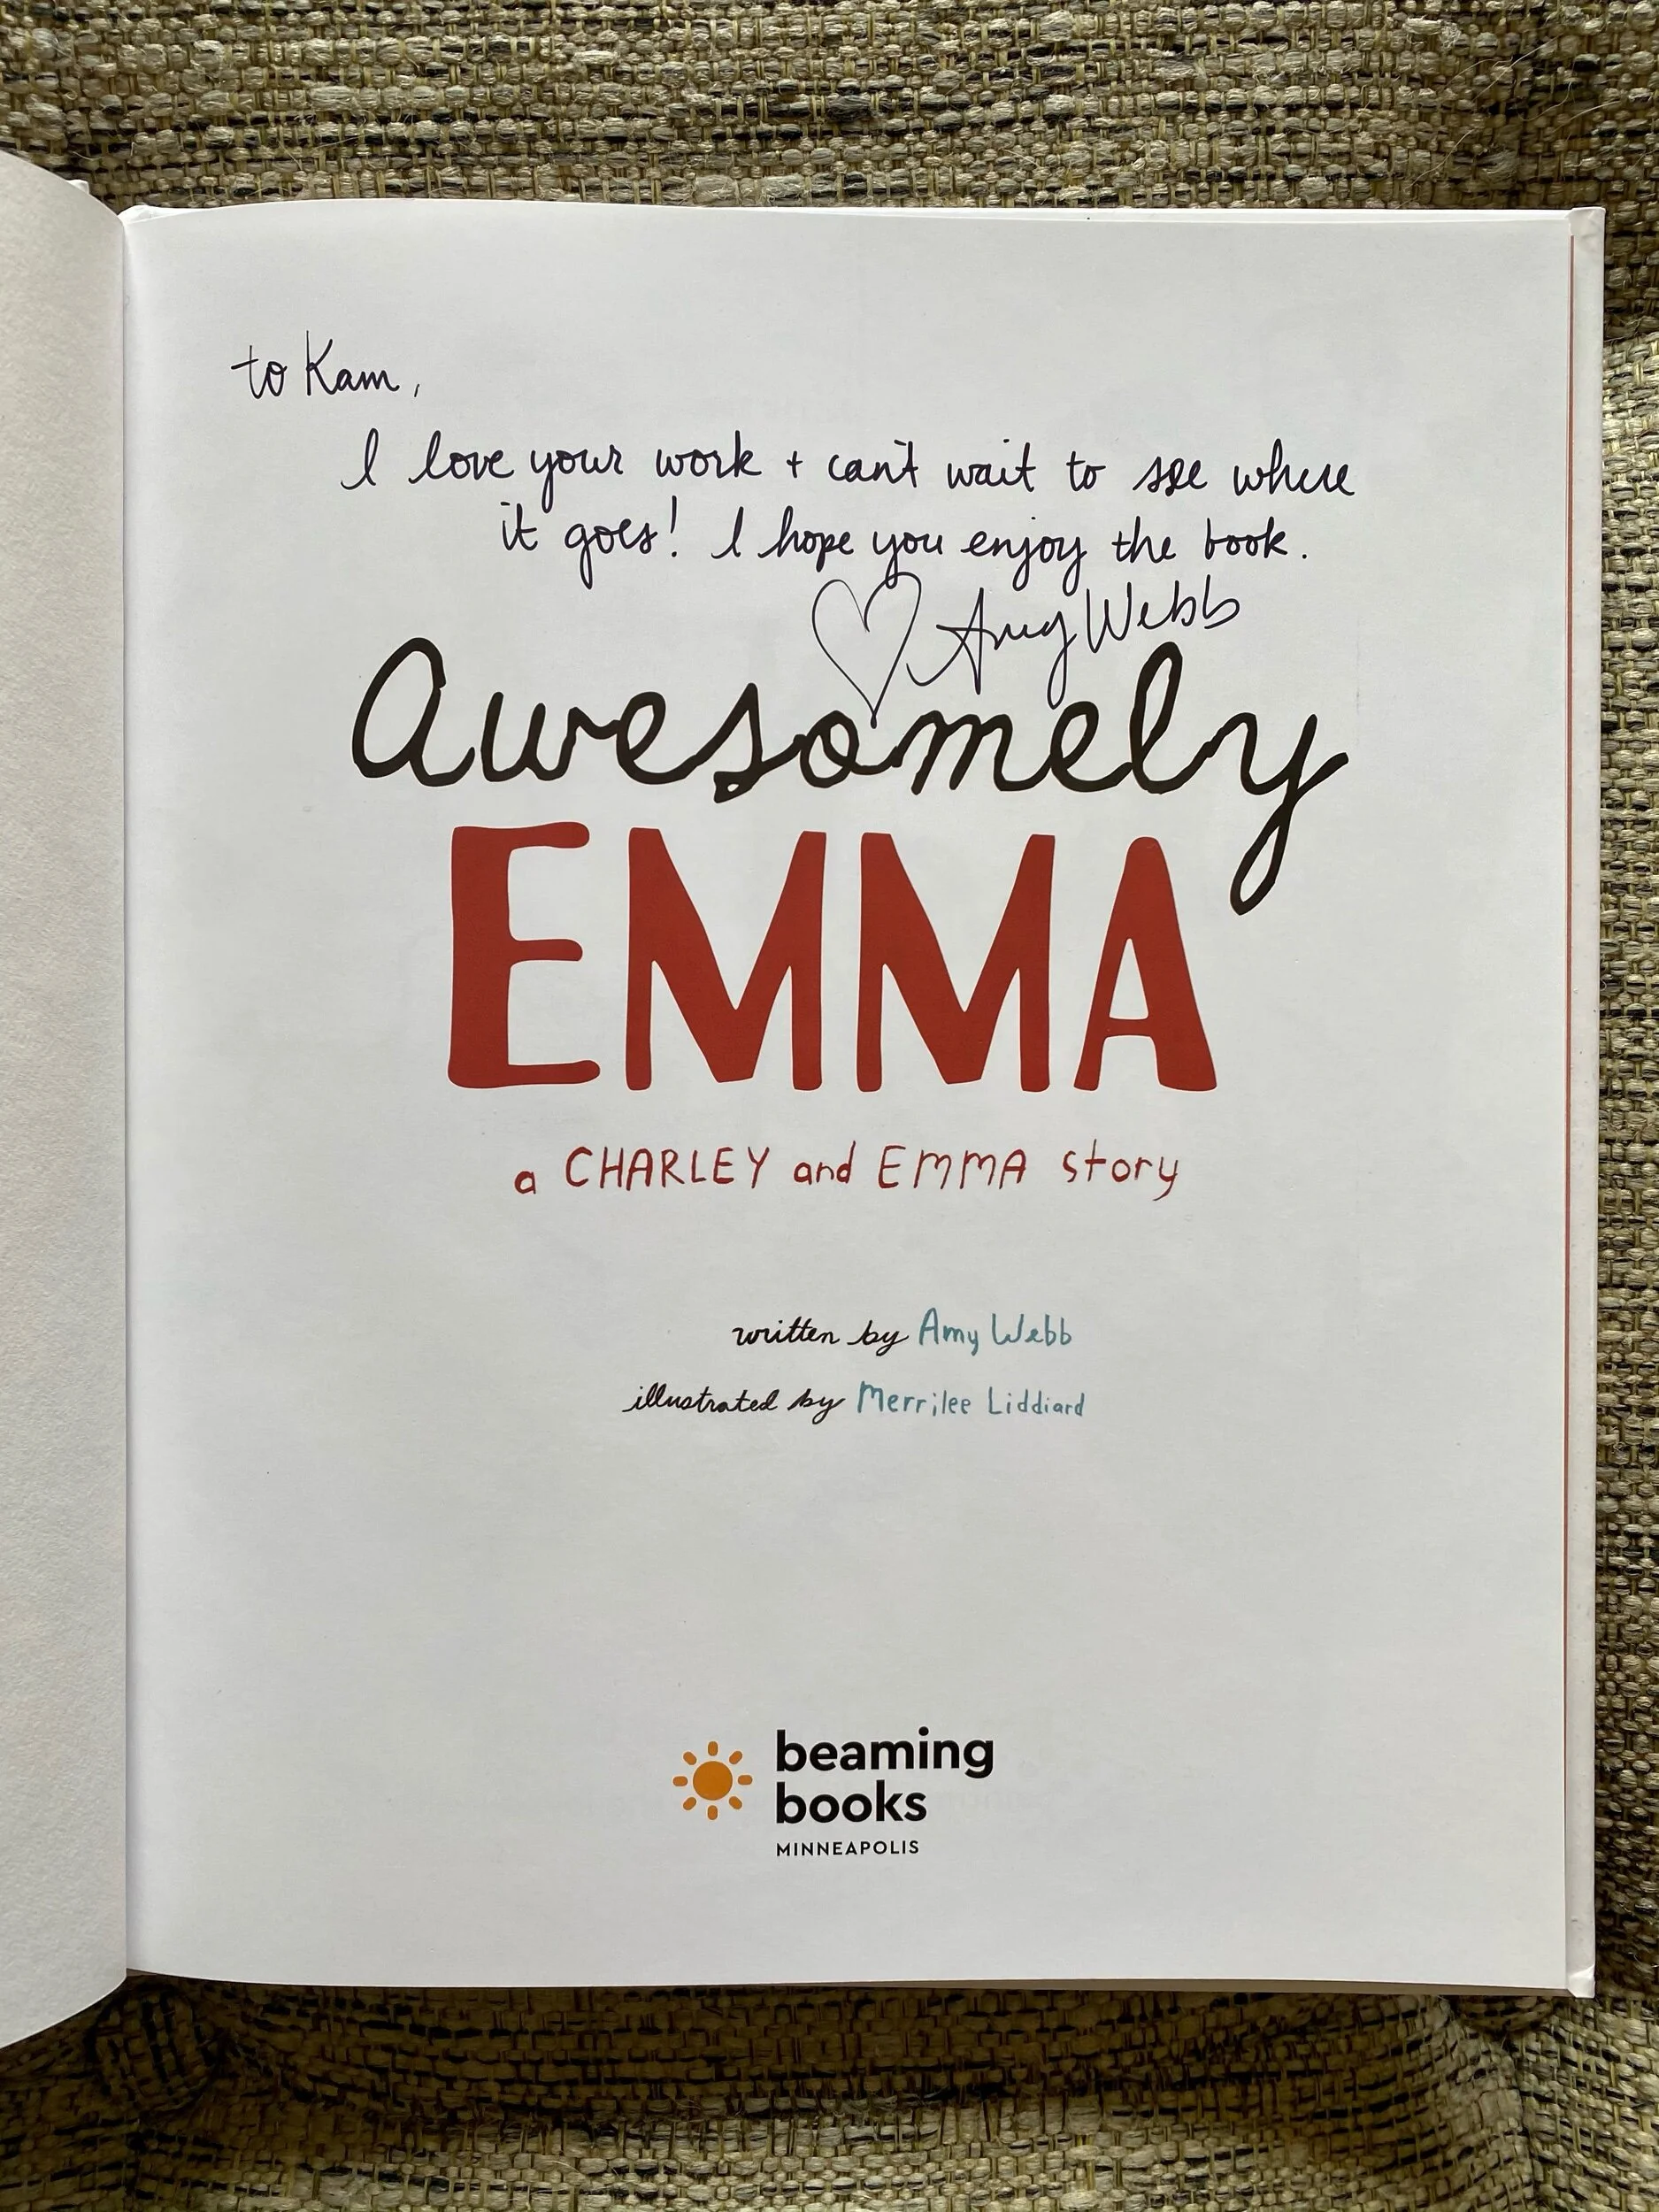 to Kam,
I love your work + can't wait to see where
it goes! I hope you enjoy the book.
Amy Webb
Awesomely
EMMA
a CHARLEY and EMMA story
written by Amy Webb
illustrated by Merrilee Liddiard
beaming
books
MINNEAPOLIS